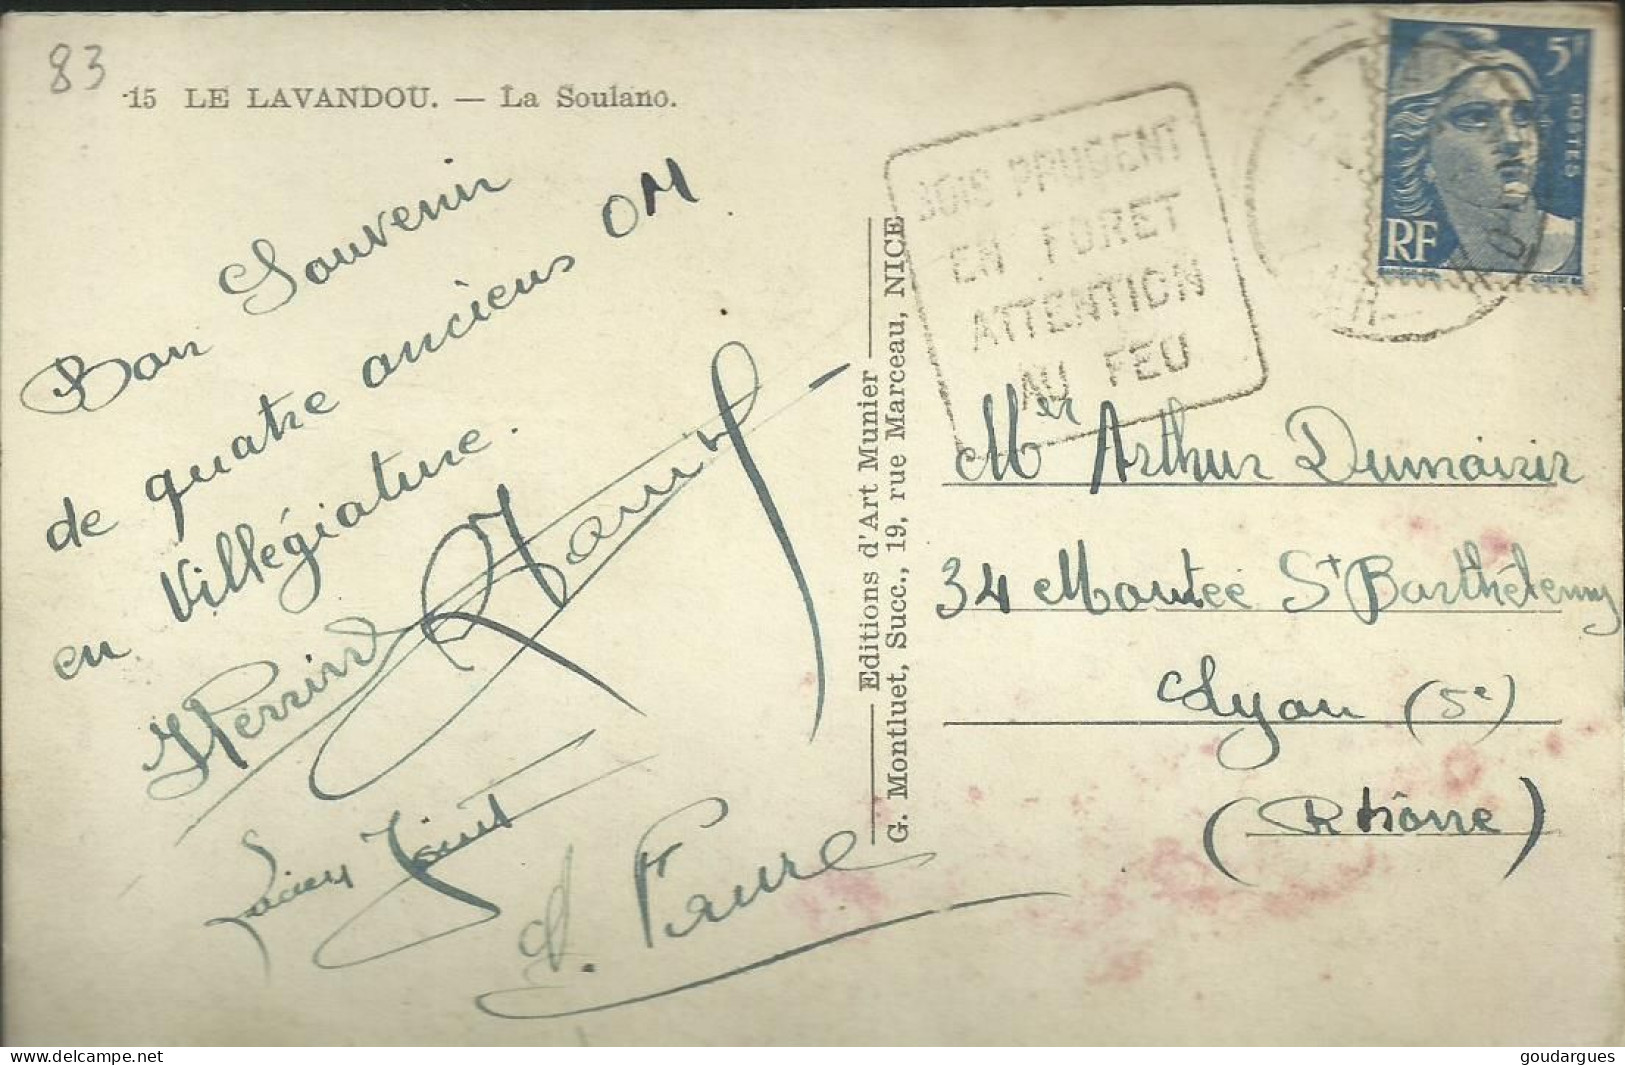 83
15 LE LAVANDOU. — La Soulano.
Bon Souvenir
de quatre anciens OM
en Villégiature.
Perrin
Faure
Editions d'Art Munier
G. Montluet, Succ., 19, rue Marceau, NICE
SOIS PRUDENT
EN FORET
ATTENTION
AU FEU
5F
POSTES
RF
Mer Arthur Dumaisir
34 Montée St Barthélemy
Lyon (5e)
(Rhône)
delcampe.net
goudargues